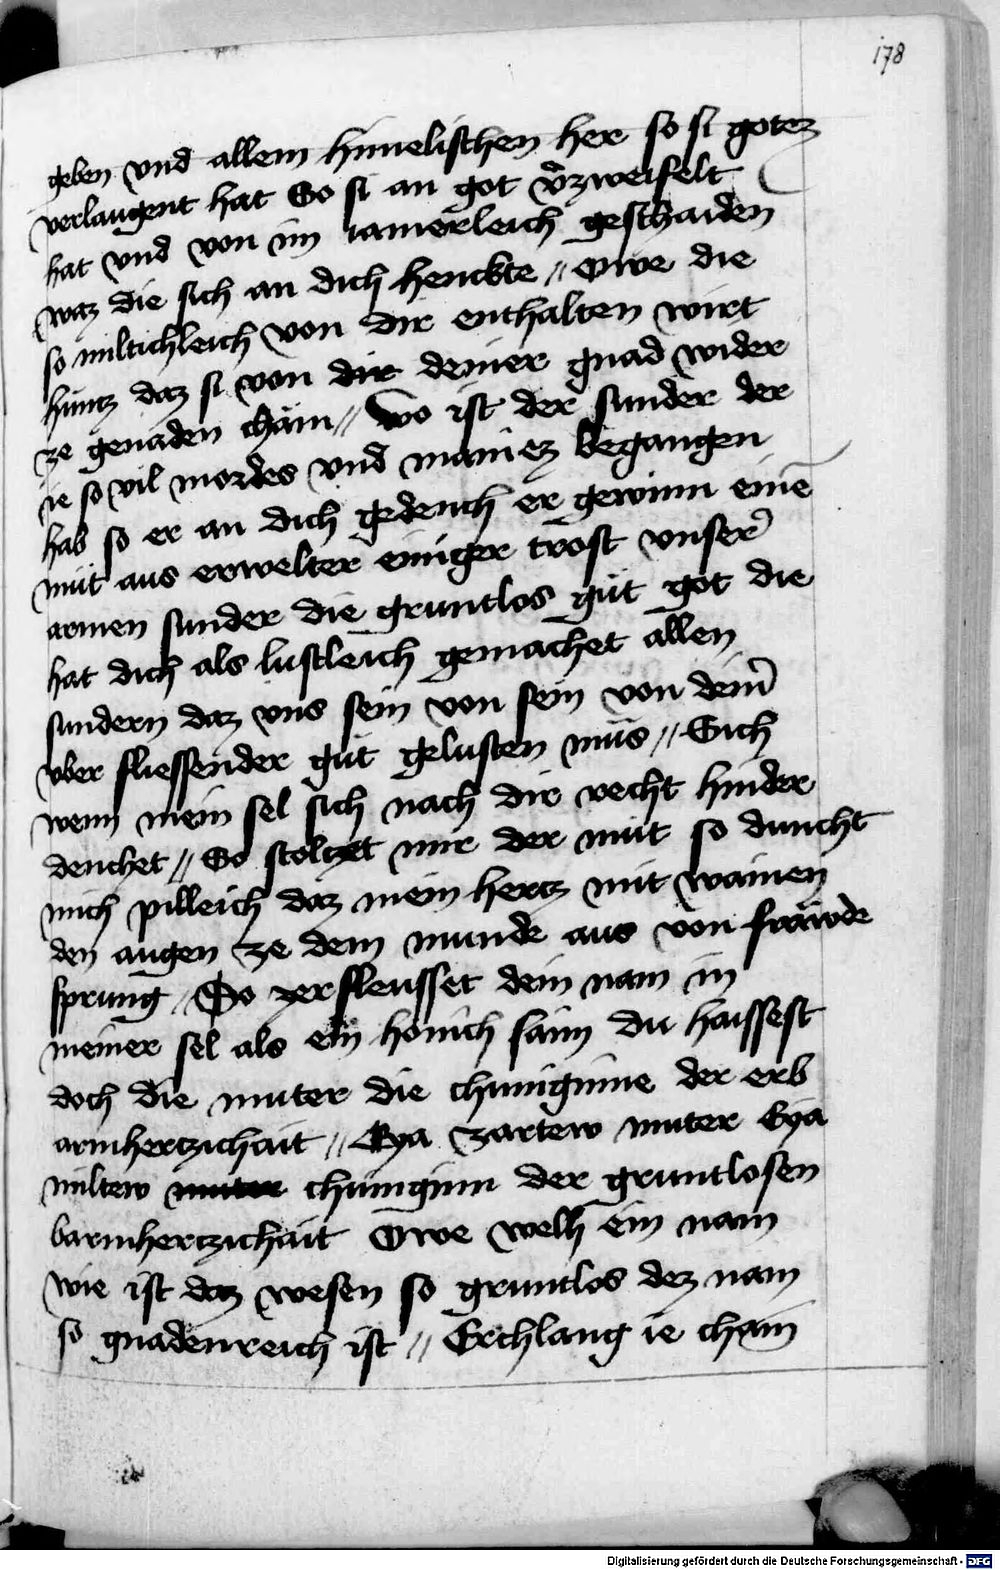 178
geben vnd allem himelischen her so si gotez
verlaugent hat So si an got v̉zweifelt
hat vnd von im iamerleich geschaiden
waz die sich an dich henckte // Owe die
so miltichleich von dir enthalten wirt
huntz daz si von dir deiner gnad wider
ze genaden chäm // Wo ist der sunder der
ie so vil mordes vnd mainez begangen
hab so er an dich gedench er gewinn einē
mut aus erwelter einiger trost vnser̉
armen sunder die gruntlos gut got die
hat dich als lustleich gemachet allen
sundern daz vns sein von sein von deim̉
vber fliessender gut gelusten mus // Sich
wenn mein sel sich nach dir recht hinder
denchet // So stoltzet mir der mut so duncht
mich pilleich daz mein hertz mit wainen
den augen ze dem munde aus von fräwde
sprung / So zerfleusset dein nam in
meiner sel als ein honich saim du haissest
doch die muter die chuniginne der erb
armhertzichait // Eya zartew muter Eya
miltew muter chuniginn der gruntlosen
barmhertzichait Owe welh ein nam
wie ist daz wesen so gruntlos dez nam
so gnadenreich ist // Erchlang ie chain
Digitalisierung gefördert durch die Deutsche Forschungsgemeinschaft - DFG